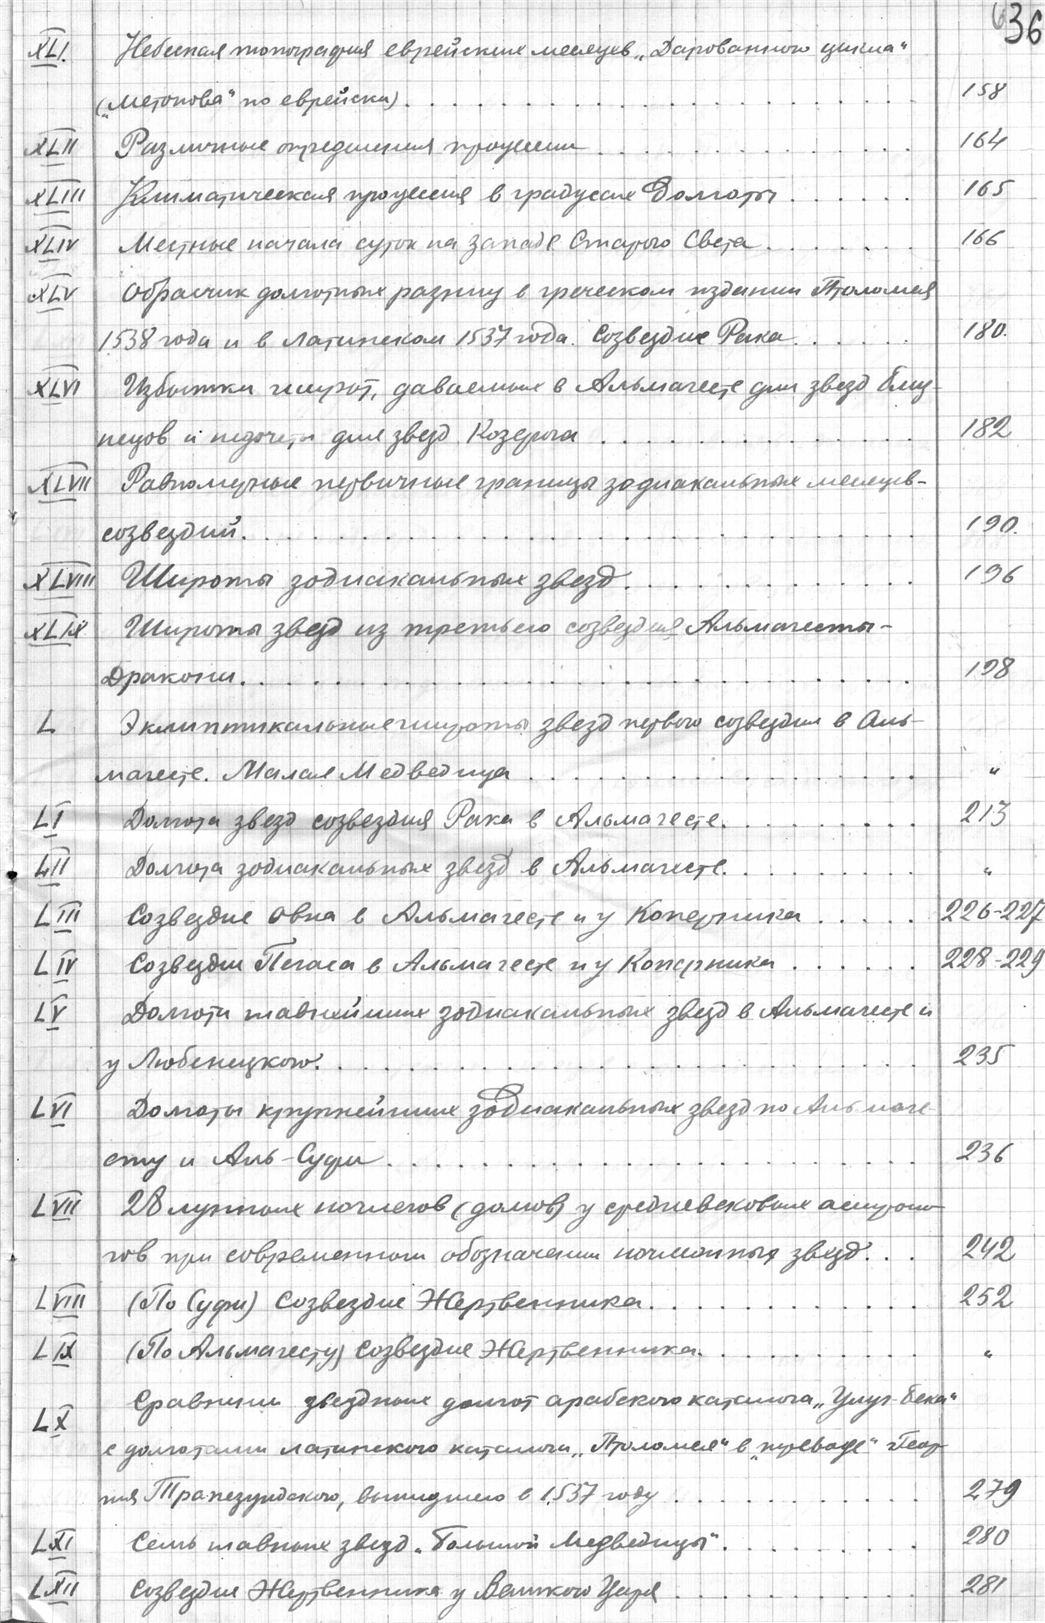 36
XLI. Небесная топография еврейских месяцев „Дарованного цикла“
(„Метонова“ по еврейски). . . . . . . . . . . . 158
XLII Различные определения процессии . . . . . . . . 164
XLIII Климатическая процессия в градусах Долготы . . . . . . 165
XLIV Местные начала суток на западе Старого Света . . . . . . 166
XLV Образчик долготных разниц в греческом издании Птоломея
1538 года и в латинском 1537 года. Созвездие Рака . . . . . 180.
XLVI Избытки широт, даваемых в Альмагесте для звезд Близ-
нецов и недочеты для звезд Козерога . . . . . . . . 182
XLVII Равномерные первичные границы зодиакальных месяцев-
созвездий. . . . . . . . . . . . . . . . 190.
XLVIII Широты зодиакальных звезд . . . . . . . . . 196
XLIX Широты звезд из третьего созвездия Альмагесты-
Дракони. . . . . . . . . . . . . . . . 198
L Эклиптикальные широты звезд первого созвездия в Аль-
магесте. Малая Медведица . . . . . . . . . . . "
LI Долгота звезд созвездия Рака в Альмагесте. . . . . . . . 213
LII Долгота зодиакальных звезд в Альмагесте. . . . . . . . "
LIII Созвездие Овна в Альмагесте и у Коперника . . . . . 226-227
LIV Созвездие Пегаса в Альмагесте и у Коперника . . . . . . 228-229
LV Долготы главнейших зодиакальных звезд в Альмагесте и
у Любенецкого. . . . . . . . . . . . . . . 235
LVI Долготы крупнейших зодиакальных звезд по Альмаге-
сту и Аль-Суфи . . . . . . . . . . . . . . 236
LVII 28 лунных ночлегов (домов) у средневековых астроно-
гов при современном обозначении ночлонных звезд. . . 242
LVIII (По Суфи) Созвездие Жертвенника. . . . . . . . . 252
LIX (По Альмагесту) Созвездие Жертвенника. . . . . . . . "
LX Сравнение звездных долгот арабского каталога „Улуг-бека“
с долготами латинского каталога „Птоломея“ в „переводе“ Геор-
гия Трапезундского, вышедшего в 1537 году . . . . . . . . 279
LXI Семь главных звезд „Большой Медведицы“. . . . . . . 280
LXII Созвездие Жертвенника у Великого Царя . . . . . . . . 281